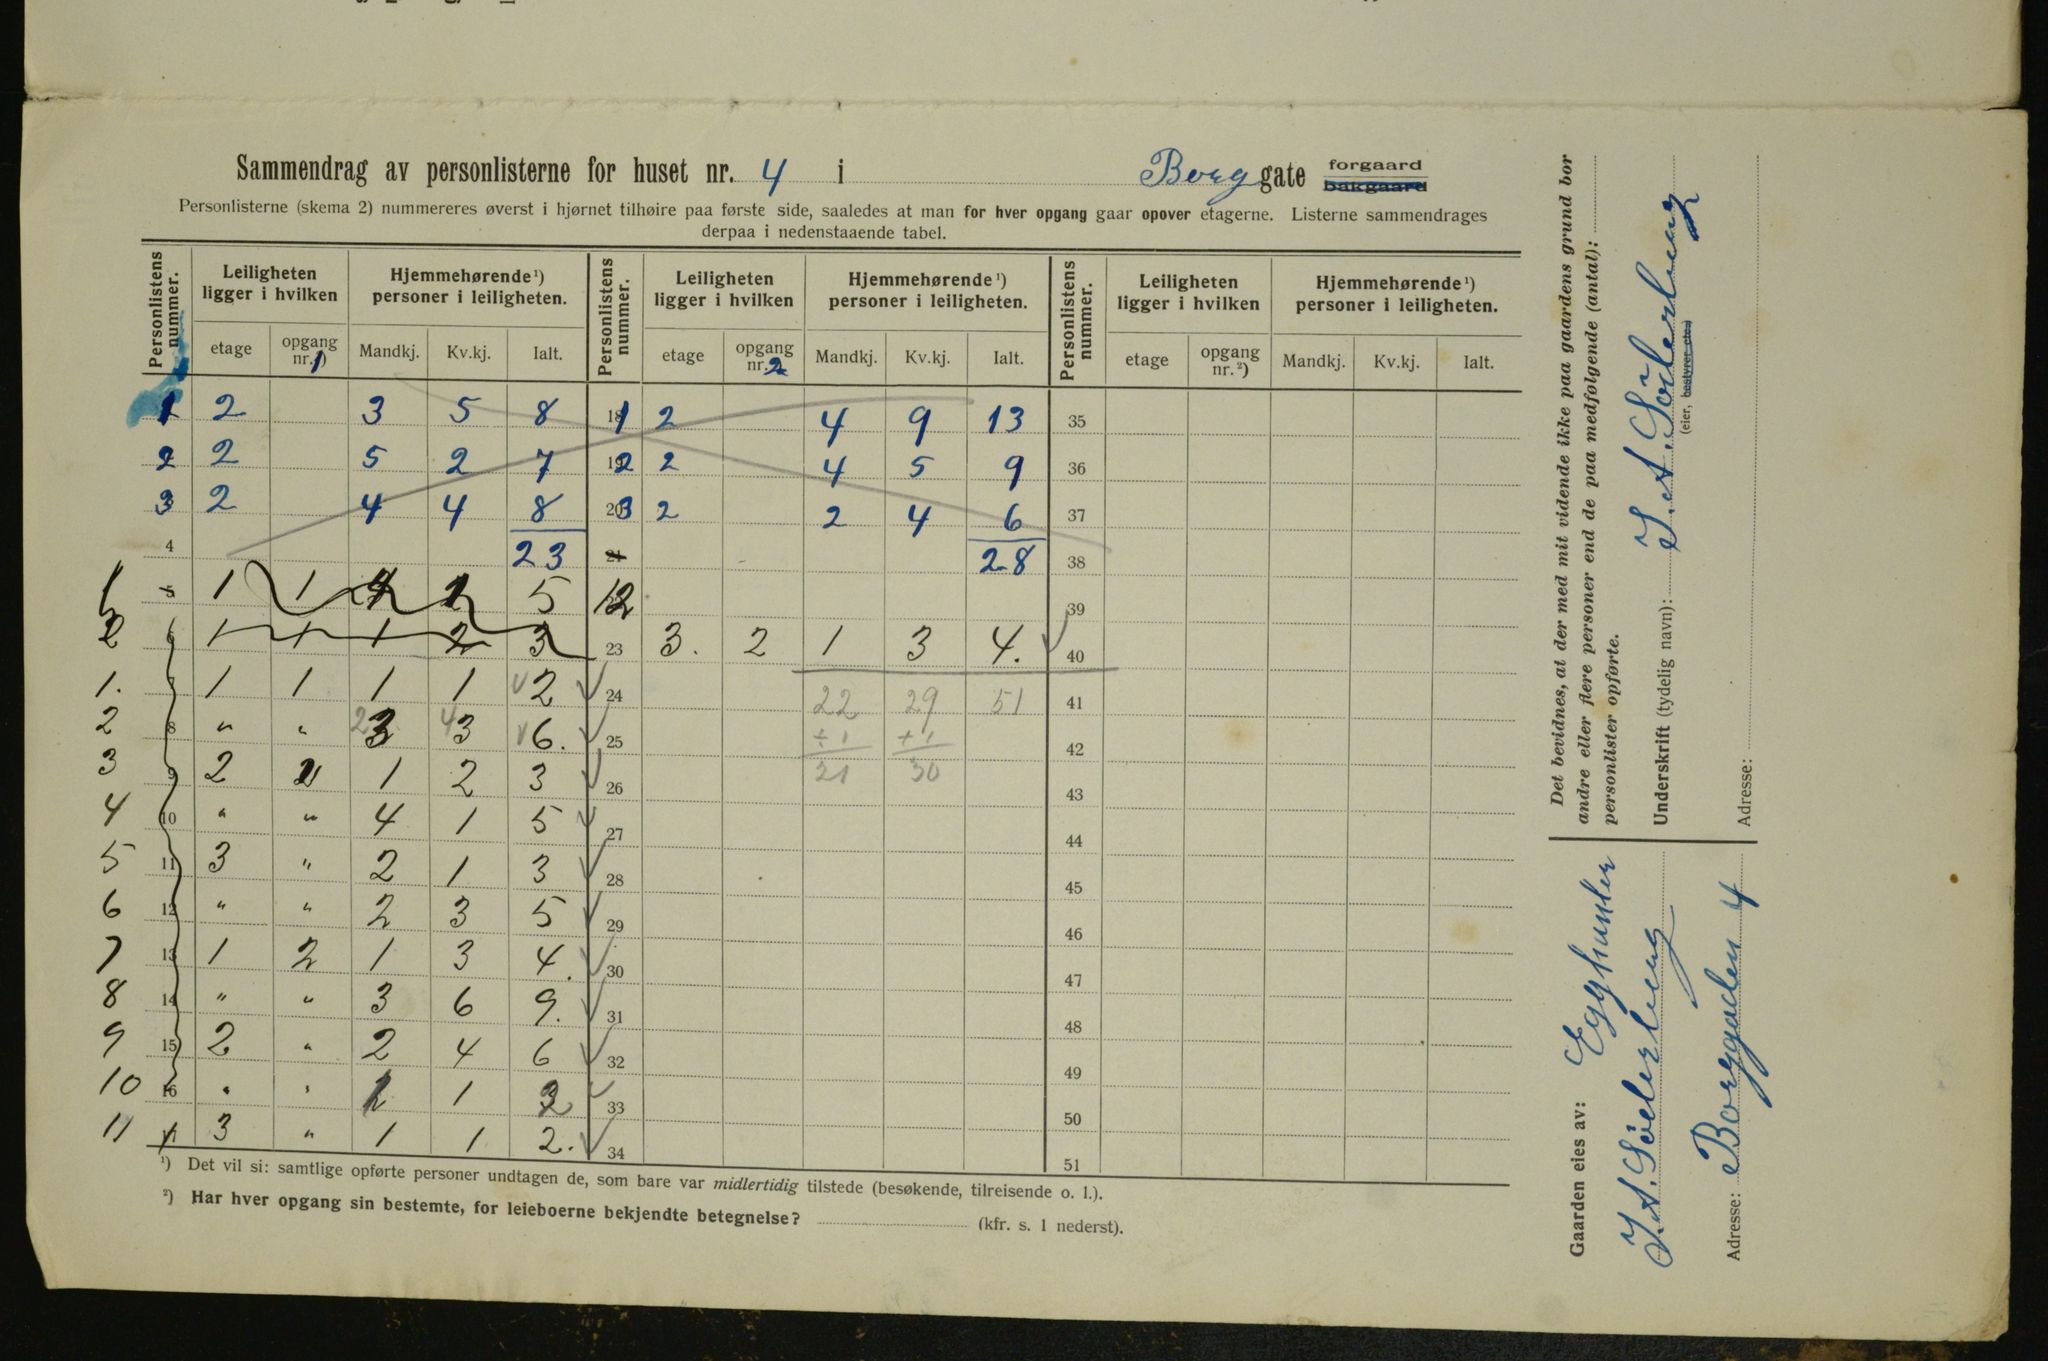 Sammendrag av personlisterne for huset nr. 4 i Borg gate forgaard bakgaard
Personlisterne (skema 2) nummereres øverst i hjørnet tilhøire paa første side, saaledes at man for hver opgang gaar opover etagerne. Listerne sammendrages
derpaa i nedenstaaende tabel.
Personlistens nummer. Leiligheten ligger i hvilken Hjemmehørende¹) personer i leiligheten. Personlistens nummer. Leiligheten ligger i hvilken Hjemmehørende¹) personer i leiligheten. Personlistens nummer. Leiligheten ligger i hvilken Hjemmehørende¹) personer i leiligheten.
etage opgang nr. 1) Mandkj. Kv.kj. Ialt. etage opgang nr. 2 Mandkj. Kv.kj. Ialt. etage opgang nr.²) Mandkj. Kv.kj. Ialt.
1 2 3 5 8 1 2 4 9 13 35
2 2 5 2 7 2 2 4 5 9 36
3 2 4 4 8 3 2 2 4 6 37
4 23 21 28 38
1 5 1 1 4 1 5 12 39
2 6 1 1 1 2 3 23 3. 2 1 3 4. 40
1. 1 1 1 1 2 24 22 29 51 41
2 8 " " 3 3 6. 25 + 1 + 1 42
3 9 2 2 1 2 3 26 21 30 43
4 10 " " 4 1 5 27 44
5 11 3 " 2 1 3 28 45
6 12 " " 2 3 5 29 46
7 13 1 2 1 3 4. 30 47
8 14 " " 3 6 9. 31 48
9 15 2 " 2 4 6 32 49
10 16 " " 1 1 2 33 50
11 3 " 1 1 2. 34 51
¹) Det vil si: samtlige opførte personer undtagen de, som bare var midlertidig tilstede (besøkende, tilreisende o. l.).
²) Har hver opgang sin bestemte, for leieboerne bekjendte betegnelse? (kfr. s. 1 nederst).
Det bevidnes, at der med mit vidende ikke paa gaardens grund bor
andre eller flere personer end de paa medfølgende (antal):
personlister opførte.
Underskrift (tydelig navn): J. A. Söderberg
(eier, bestyrer etc.)
Adresse:
Gaarden eies av: Egghandler
J. A. Söderberg
Adresse: Borggaden 4